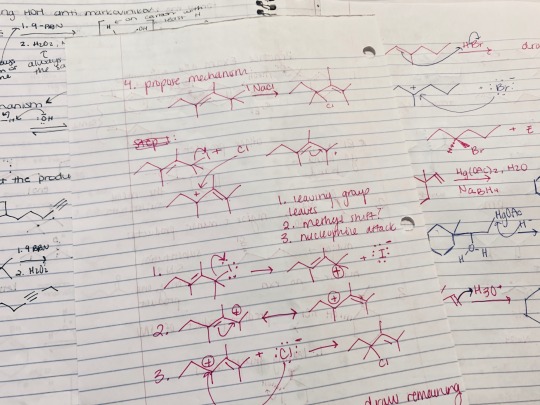 ng HOH anti markovnikov
1. 9-BBN
2. H2O2,
4. propose mechanism
NaCl
Cl
Step 1:
Cl
1. leaving group
leaves
2. methyl shift?
3. nucleophile attack
1.
+ I
2.
3.
+ Cl
Cl
draw remaining
HBr
Br
Br
+ E
Hg(OAc)2, H2O
NaBH4
HgOAc
H
O
H
H3O+
:OH
r the produ
1. 9-BBN
2. H2O2